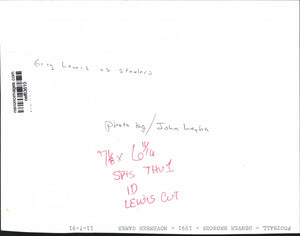 Greg Lewis vs Steelers
photo by / John Leyba
7 1/8 x 6 11/16
SPTS THU 1
ID
LEWIS CUT
FOOTBALL - DENVER BRONCOS - 1991 - NOVEMBER GAMES 11-7-91